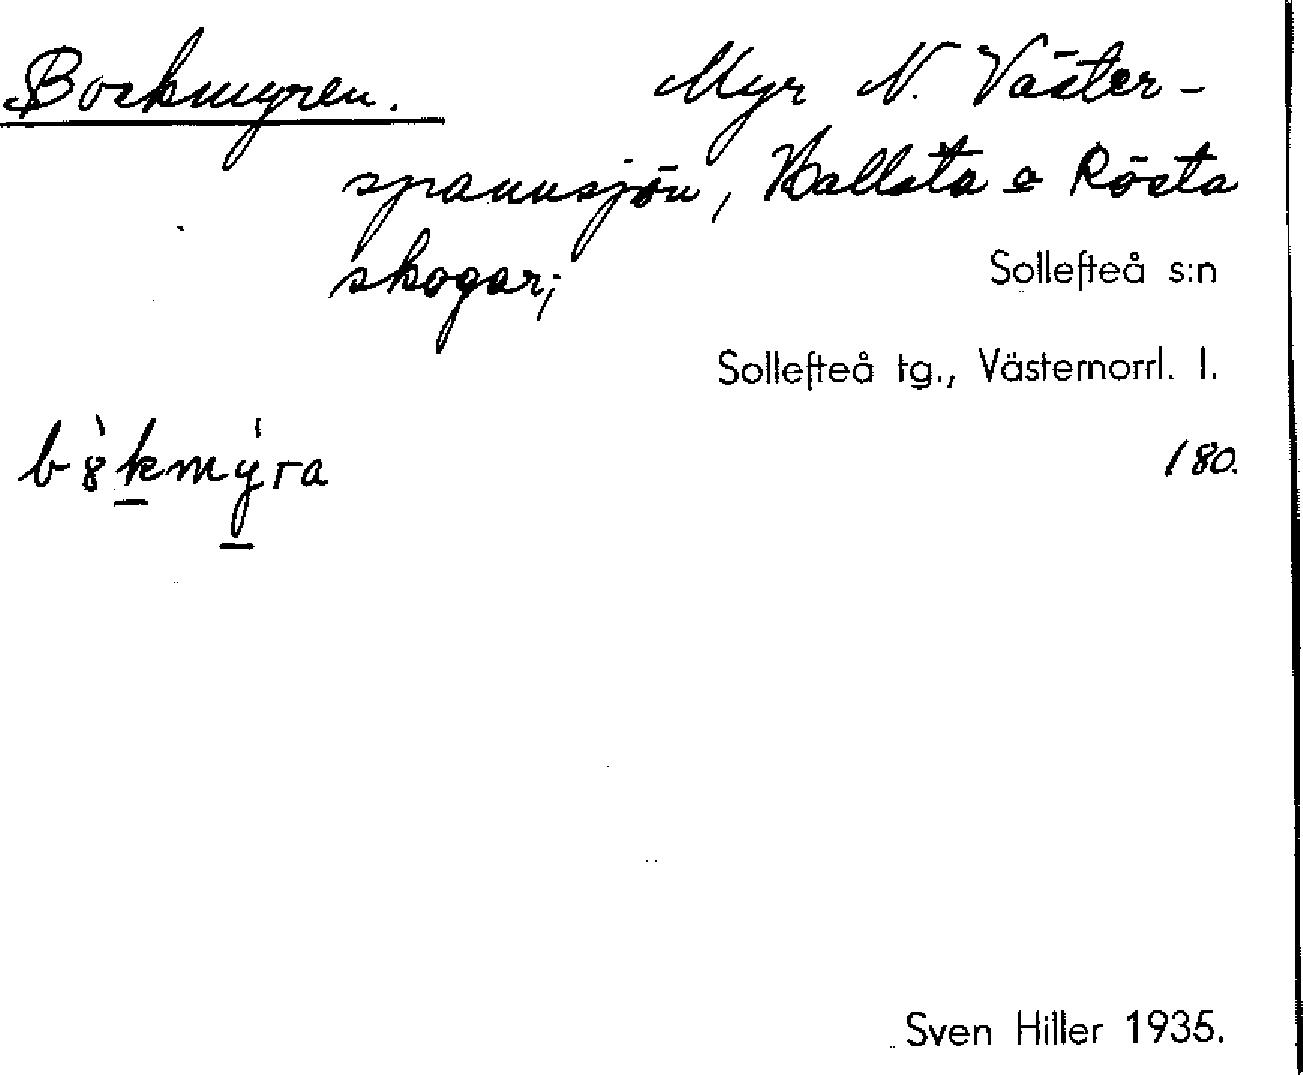 Bockmyren. Myr N. Väster-
spannsjön, Hallsta o Rösta
skogar;
Sollefteå s:n
Sollefteå tg., Västernorrl. l.
b8̀kmýra /80.
Sven Hiller 1935.